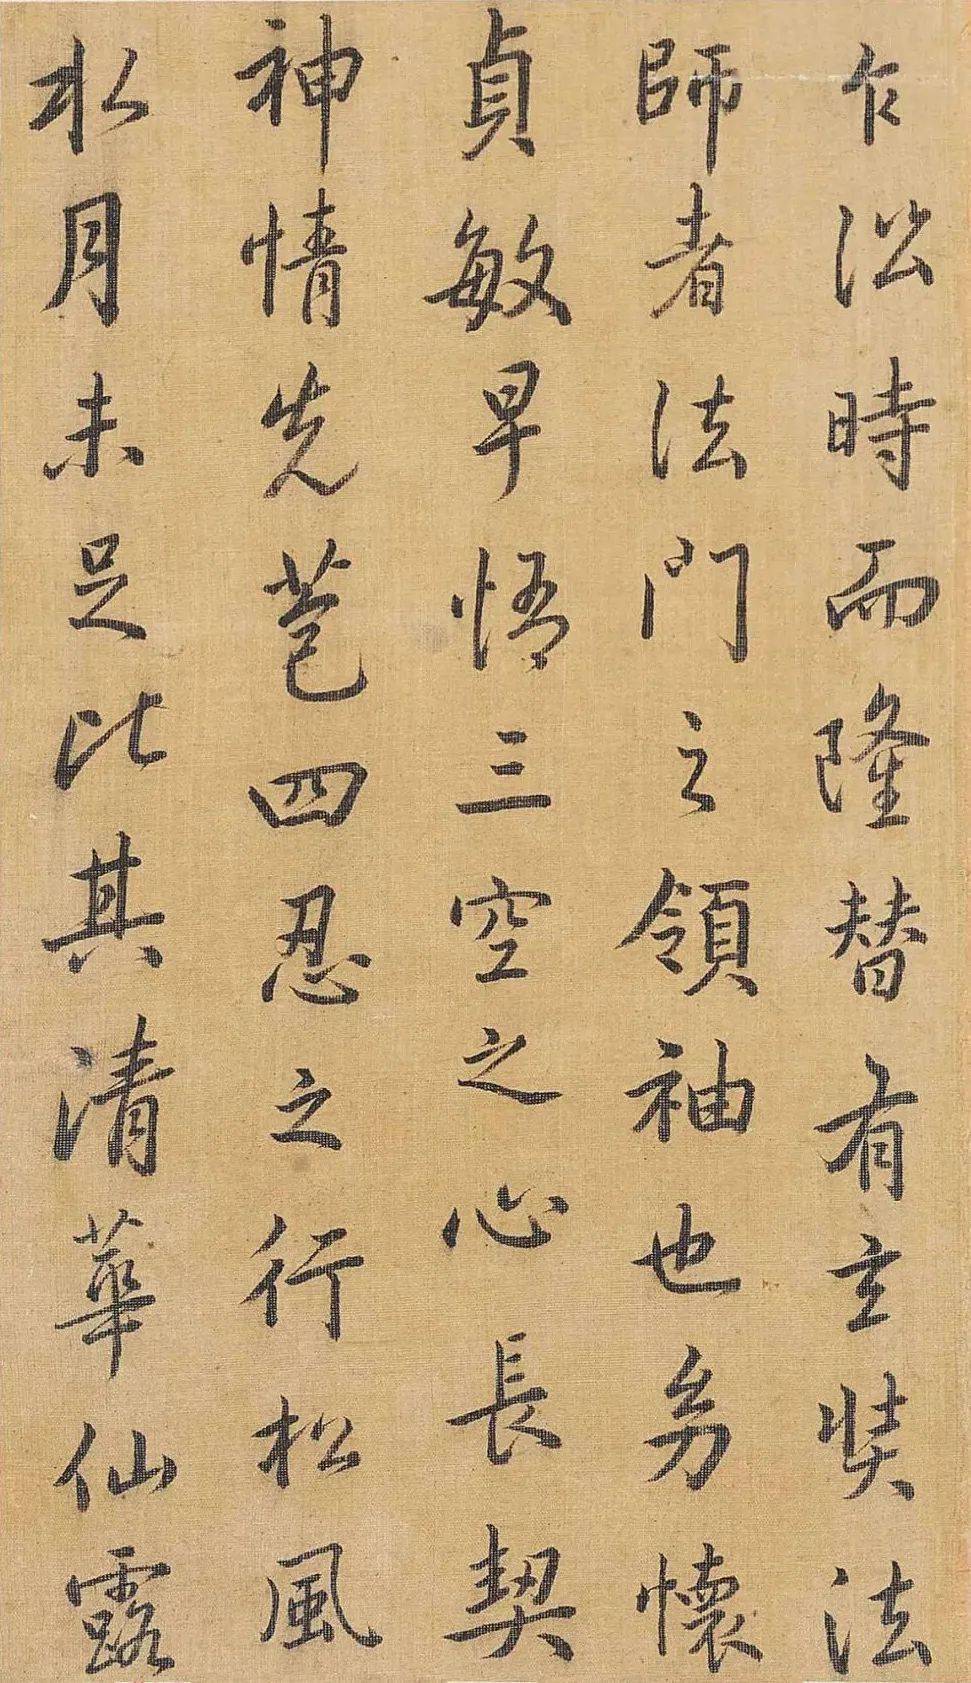 乍沿時而隆替有玄奘法
師者法門之領袖也㓜懷
貞敏早悟三空之心長契
神情先苞四忍之行松風
水月未足比其清華仙露